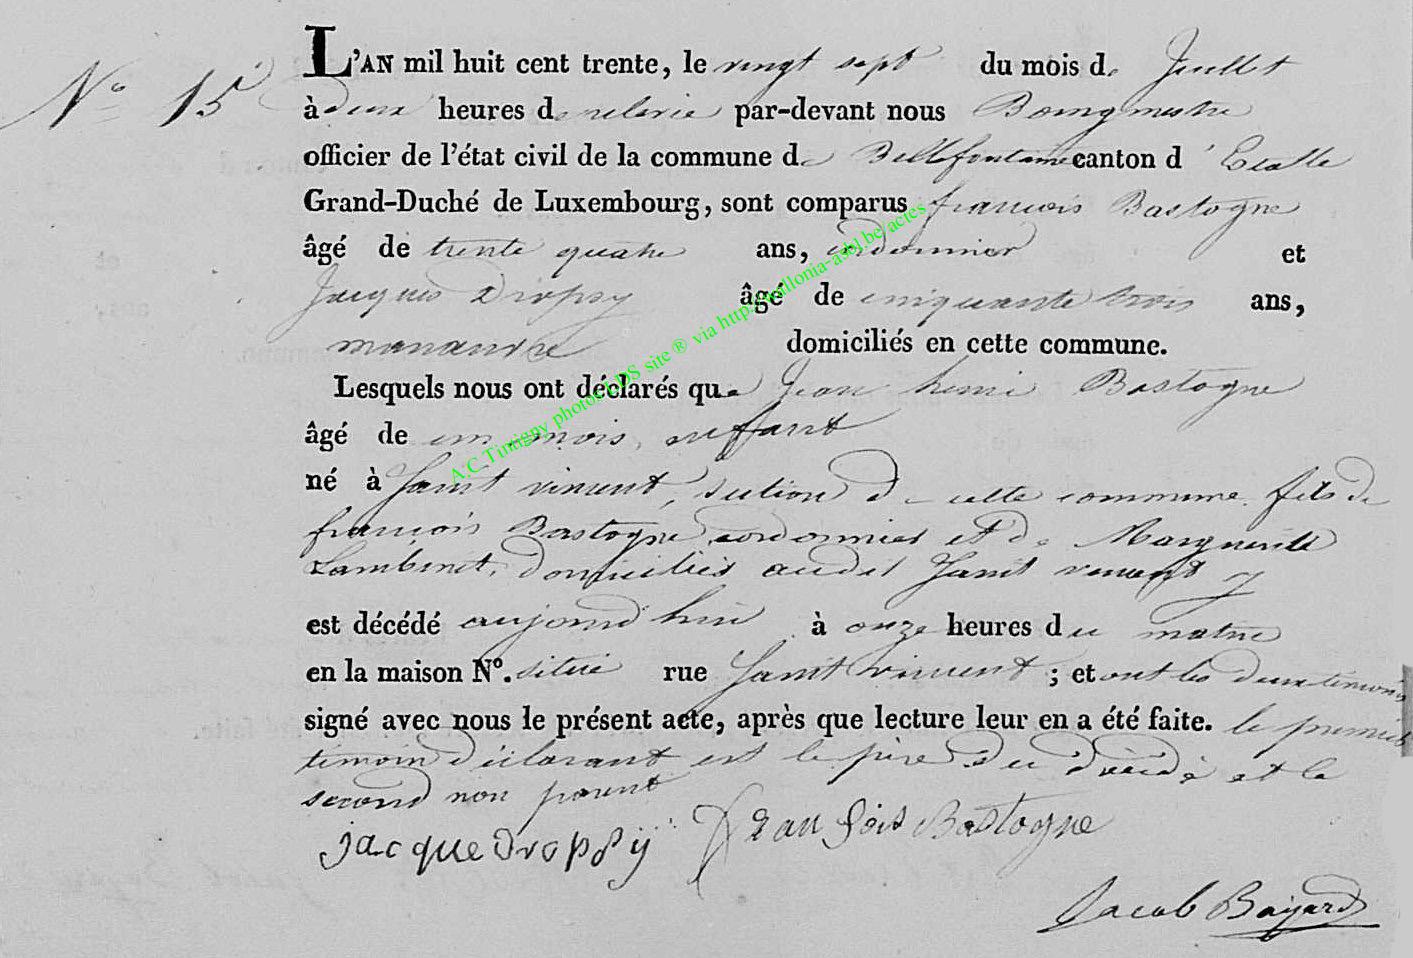 N° 15
L'AN mil huit cent trente, le vingt sept du mois de Juillet
à deux heures de relevée par-devant nous Bourgmestre
officier de l'état civil de la commune de Bellefontaine canton d'Etalle
Grand-Duché de Luxembourg, sont comparus françois Bastogne
âgé de trente quatre ans, cordonnier et
Jacques Dropsy âgé de cinquante trois ans,
manœuvre domiciliés en cette commune.
Lesquels nous ont déclarés que Jean henri Bastogne
âgé de un mois, enffant
né à Saint vincent, section de cette commune fils de
françois Bastogne cordonnier et de Marguerite
Lambinet, domiciliés audit Saint vincent y
est décédé aujourd'hui à onze heures du matin
en la maison N°. située rue Saint vincent ; et ont les deux témoins
signé avec nous le présent acte, après que lecture leur en a été faite. le premier
témoin déclarant est le père du décédé et le
second non parent
jacque Dropsÿ franSois Bastogne
Jacob Bayard
A.C.Tintigny photos LDS site ® via http://wallonia-asbl.be/actes